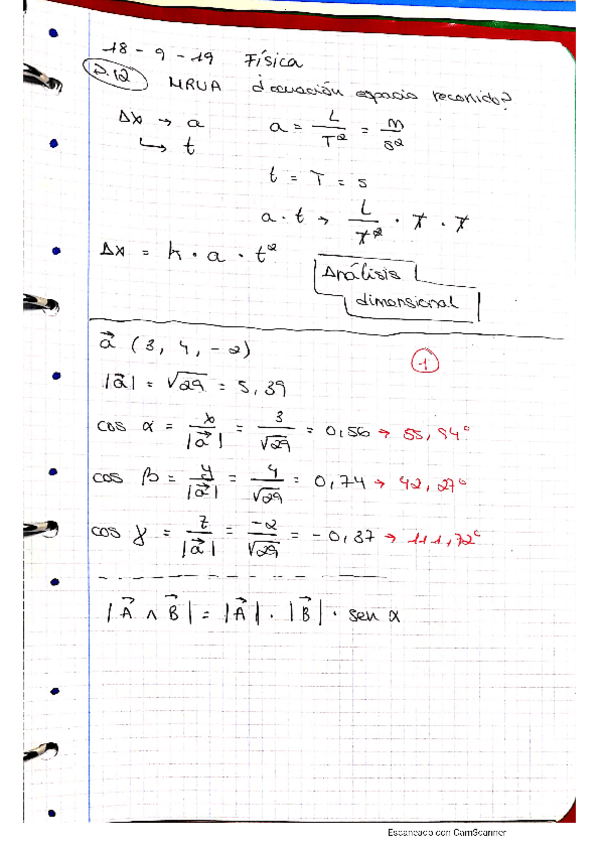 18 - 9 - 19 Física
P.12 MRUA ¿ecuación espacio recorrido?
Δx → a a = L/T² = m/s²
↳ t t = T = s
a · t → L/T² · T · T
Δx = k · a · t²
Análisis
dimensional
a⃗ (3, 4, -2) -1
|a⃗| = √29 = 5,39
cos α = x/|a⃗| = 3/√29 = 0,56 → 55,94°
cos β = y/|a⃗| = 4/√29 = 0,74 → 42,27°
cos γ = z/|a⃗| = -2/√29 = -0,37 → 111,72°
|A⃗ ∧ B⃗| = |A⃗| · |B⃗| · sen α
Escaneado con CamScanner